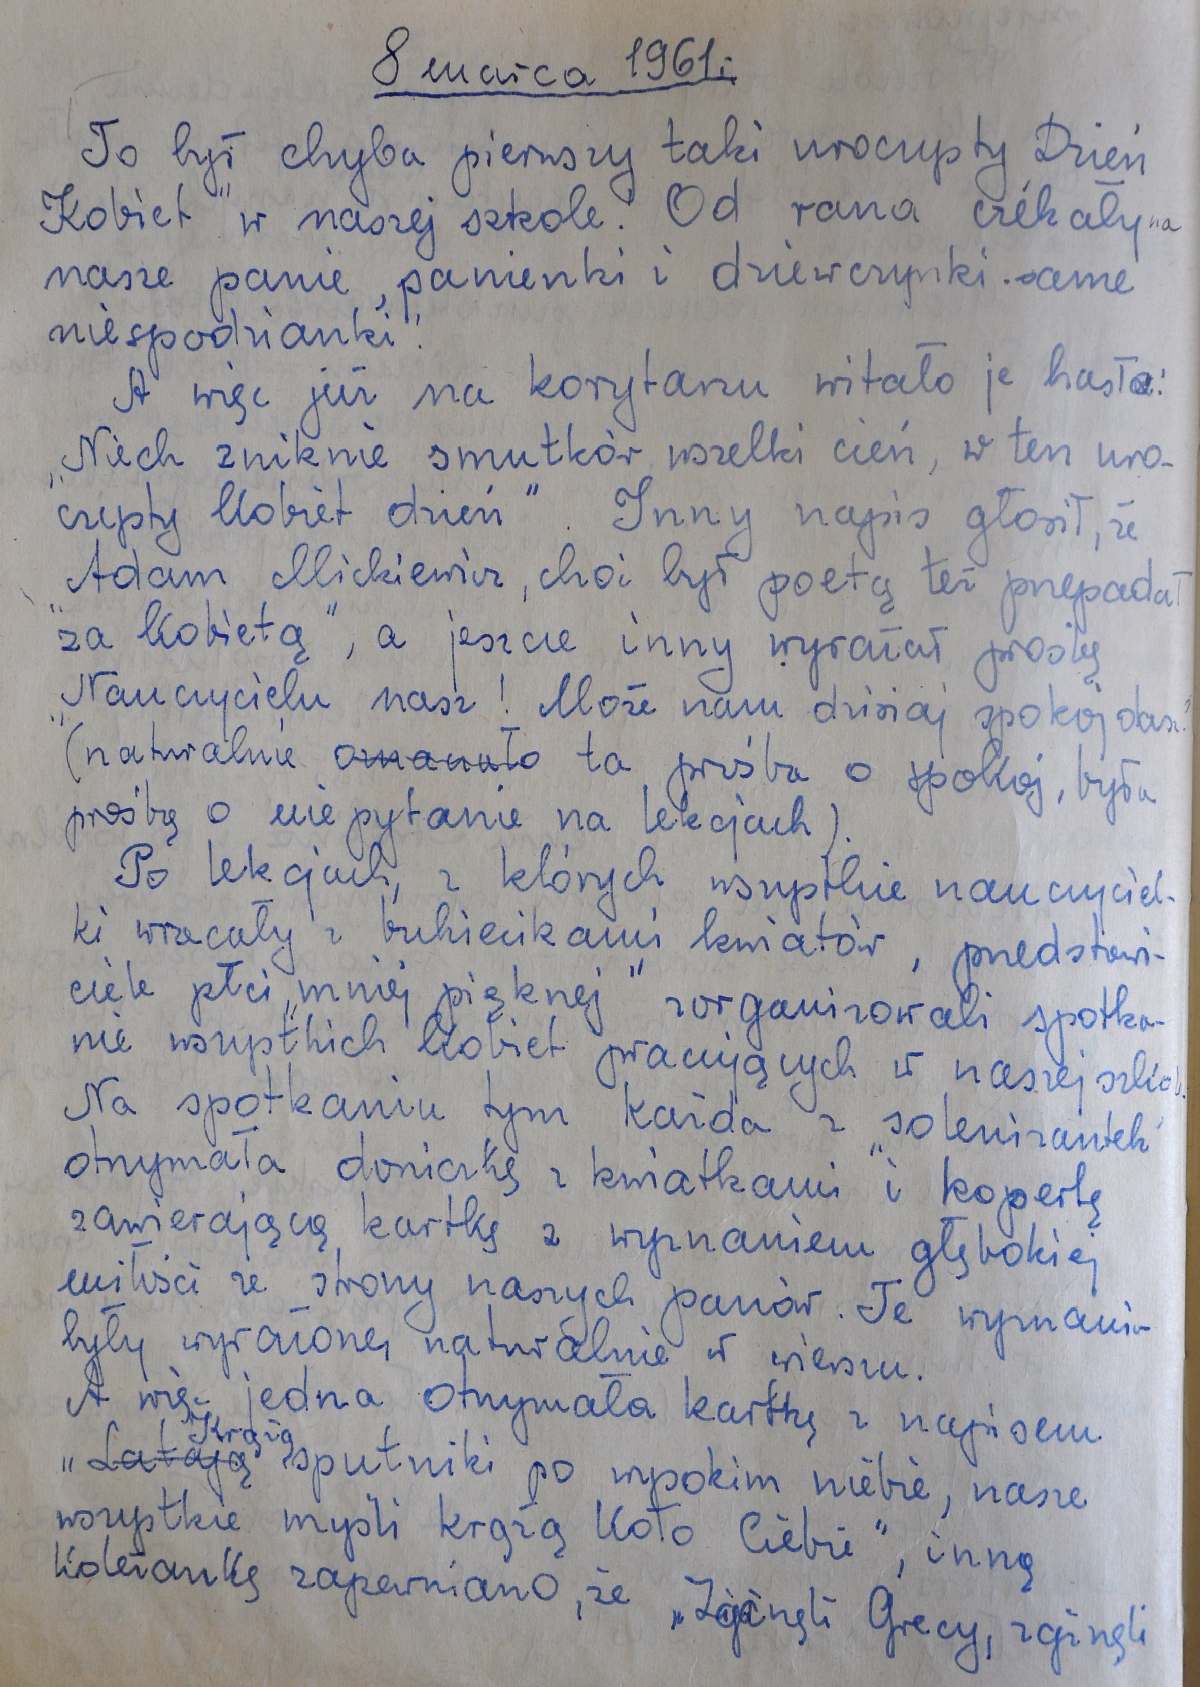 8 marca 1961r.
To był chyba pierwszy taki uroczysty „Dzień
Kobiet" w naszej szkole. Od rana czekały na
nasze panie, panienki i dziewczynki same
niespodzianki!
A więc już na korytarzu witało je hasło:
„Niech zniknie smutków wszelki cień, w ten uro-
czysty Kobiet dzień". Inny napis głosił, że
„Adam Mickiewicz, choć był poetą też przepadał
za Kobietą", a jeszcze inny wyrażał prośbę
„Nauczycielu nasz! Może nam dzisiaj spokój dasz"
(naturalnie ta prośba o spokój, była
prośbą o niepytanie na lekcjach).
Po lekcjach, z których wszystkie nauczyciel-
ki wracały z bukiecikami kwiatów, przedstawi-
ciele płci „mniej pięknej" zorganizowali spotka-
nie wszystkich Kobiet pracujących w naszej szkole.
Na spotkaniu tym każda z „solenizantek"
otrzymała doniczkę z kwiatkami i kopertę
zawierającą kartkę z wyznaniem głębokiej
miłości ze strony naszych panów. Te wyznania
były wyrażone, naturalnie w wierszu.
A więc jedna otrzymała kartkę z napisem
„Latają Krążą sputniki po wysokim niebie, nasze
wszystkie myśli krążą koło Ciebie", inną
Koleżankę zapewniano, że „Zginęli Grecy, zginęli